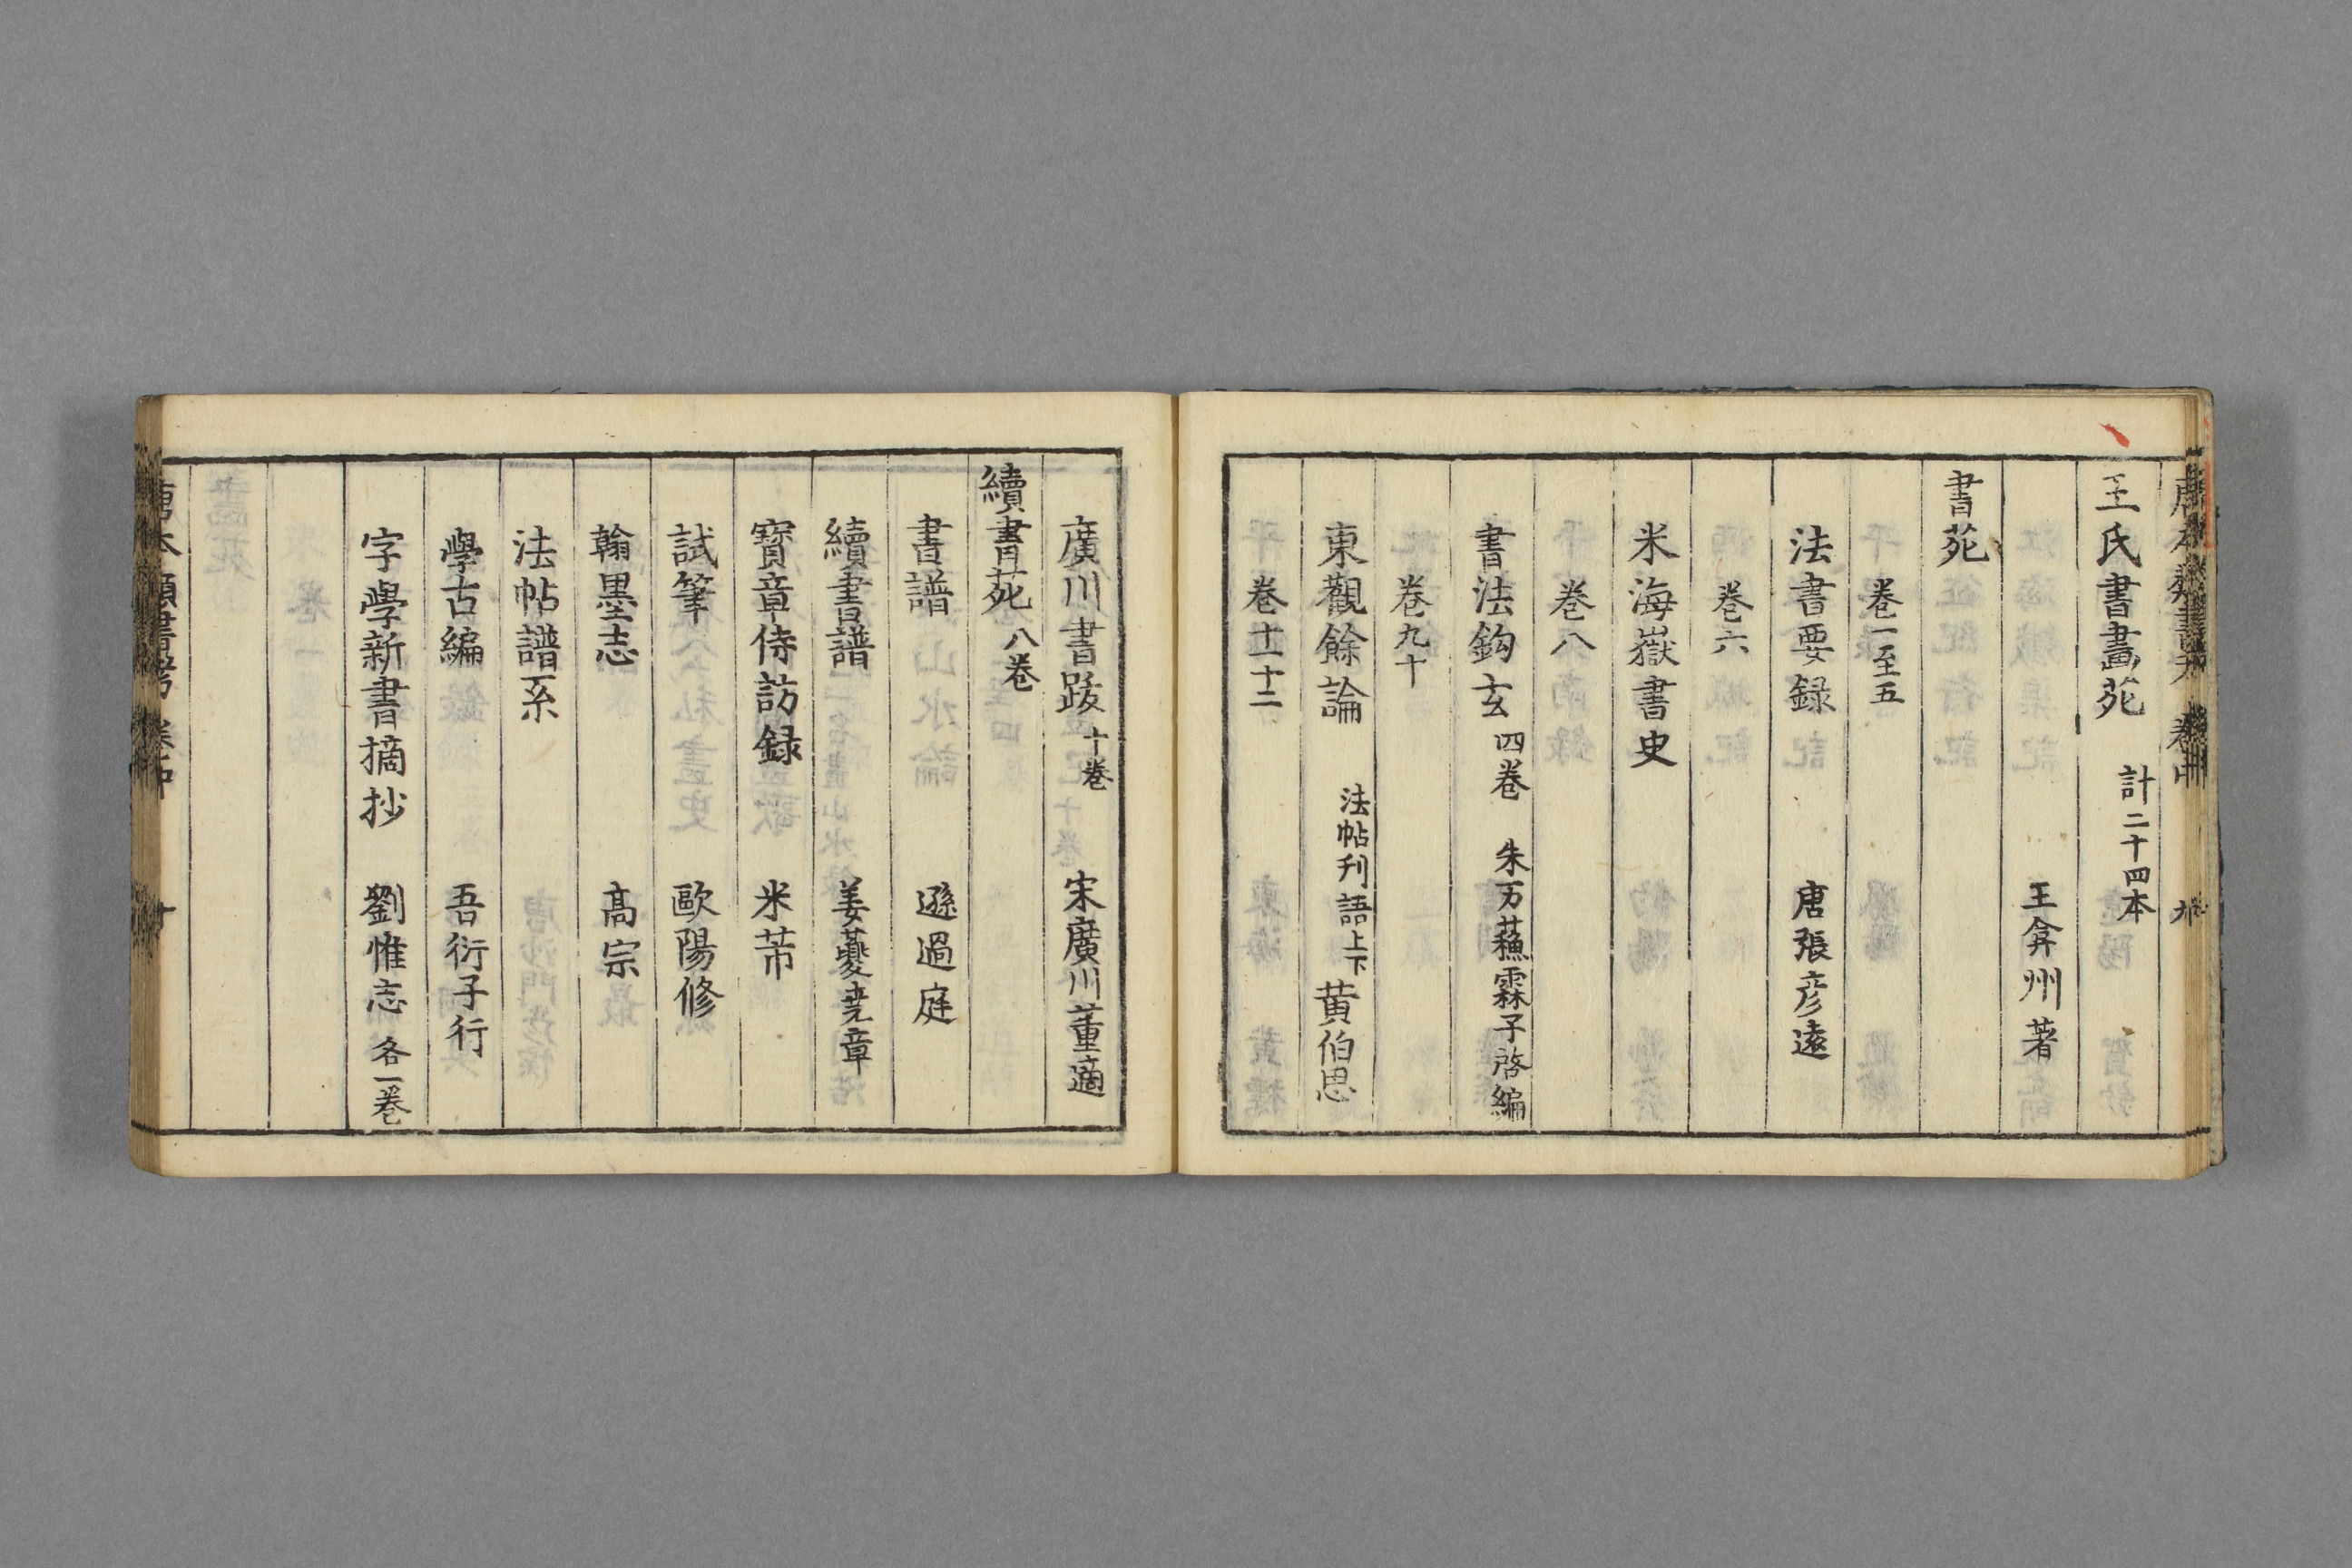 王氏書畫苑 計二十四本
王弇州著
書苑
卷一至五
法書要録 唐張彦遠
卷六
米海嶽書史
卷八
書法鈎玄 四卷 朱万蘓霖子啓編
卷九十
東觀餘論 法帖刊語上下 黄伯思
卷十一十二
廣川書跋 十卷 宋廣川董逌
續書苑 八卷
書譜 孫過庭
續書譜 姜夔尭章
寳章侍訪録 米芾
試筆 歐陽修
翰墨志 高宗
法帖譜系
學古編 吾衍子行
字學新書摘抄 劉惟志 各一卷